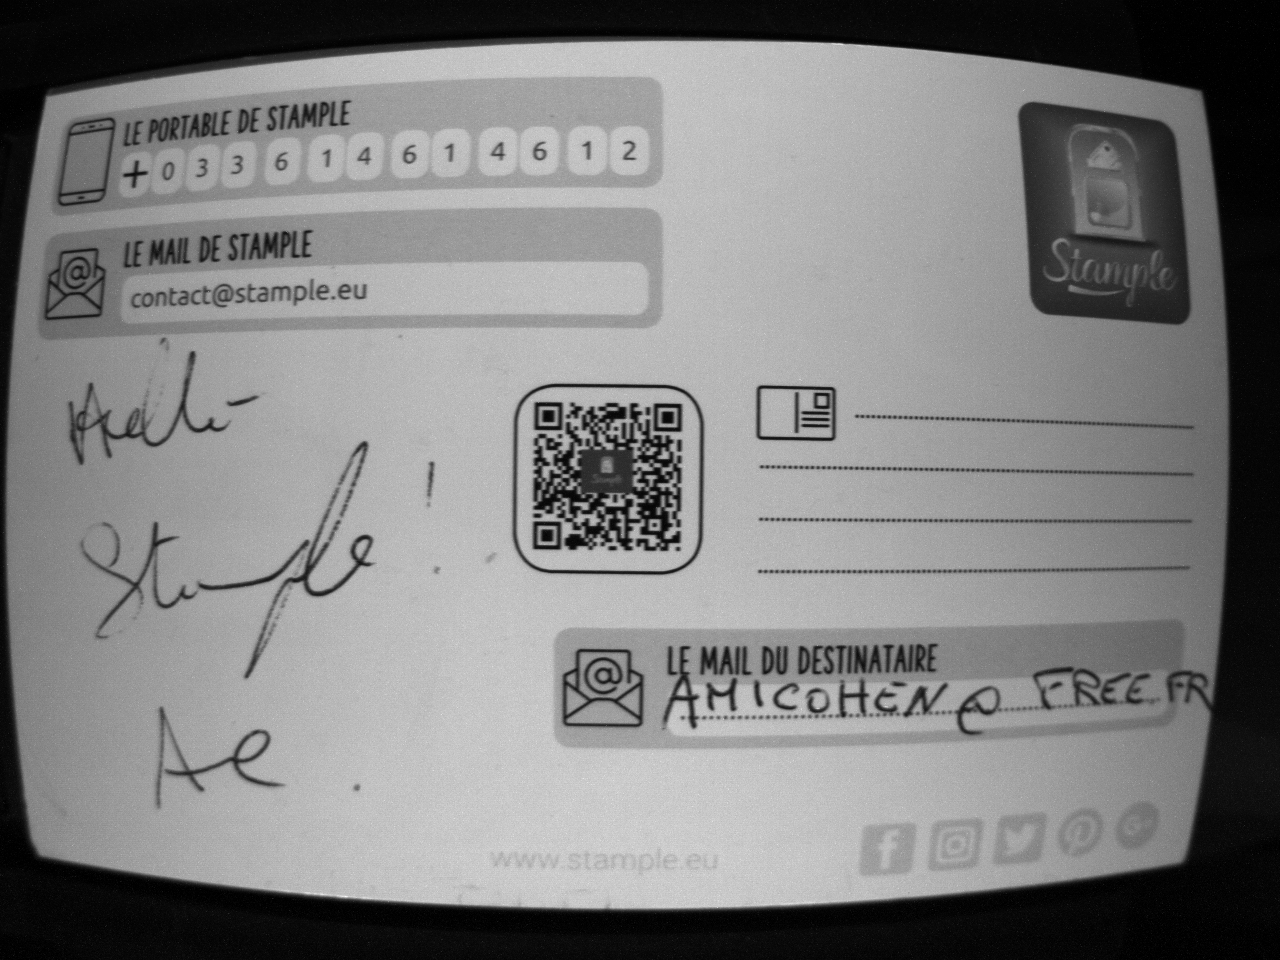 LE PORTABLE DE STAMPLE
+ 0 3 3 6 1 4 6 1 4 6 1 2
LE MAIL DE STAMPLE
contact@stample.eu
Stample
Hello
Stample !
AC.
LE MAIL DU DESTINATAIRE
AMICOHEN@FREE.FR
www.stample.eu